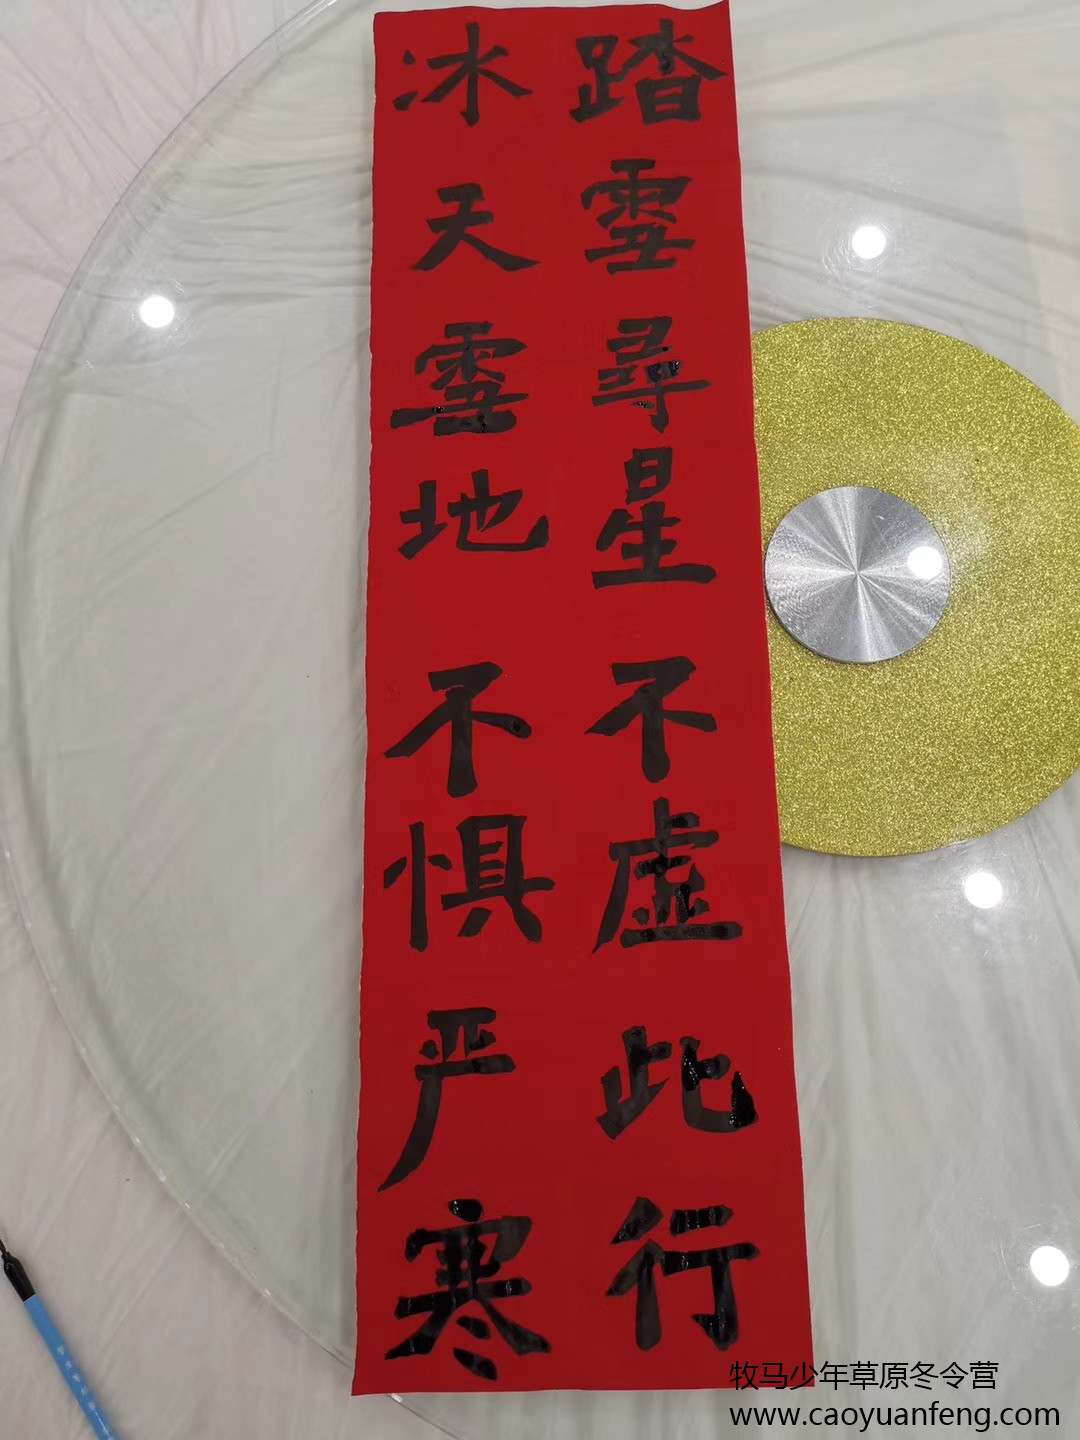 踏雪尋星不虚此行
冰天雪地不惧严寒
牧马少年草原冬令营
www.caoyuanfeng.com